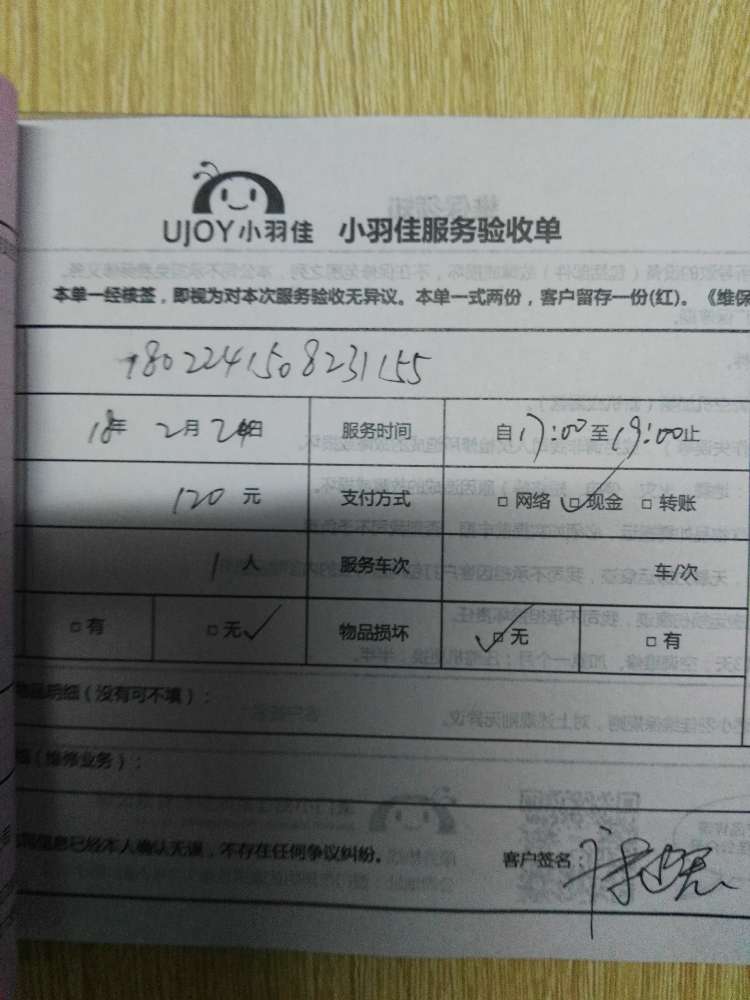 UJOY小羽佳 小羽佳服务验收单
本单一经核签，即视为对本次服务验收无异议。本单一式两份，客户留存一份(红)。《维保
1802241508231155
18年 2月24日 服务时间 自17:00至19:00止
120元 支付方式 □网络 □✓现金 □转账
1人 服务车次 车/次
□有 □无✓ 物品损坏 ✓□无 □有
物品明细（没有可不填）：
（维修业务）：
信息已经本人确认无误，不存在任何争议纠纷。 客户签名：